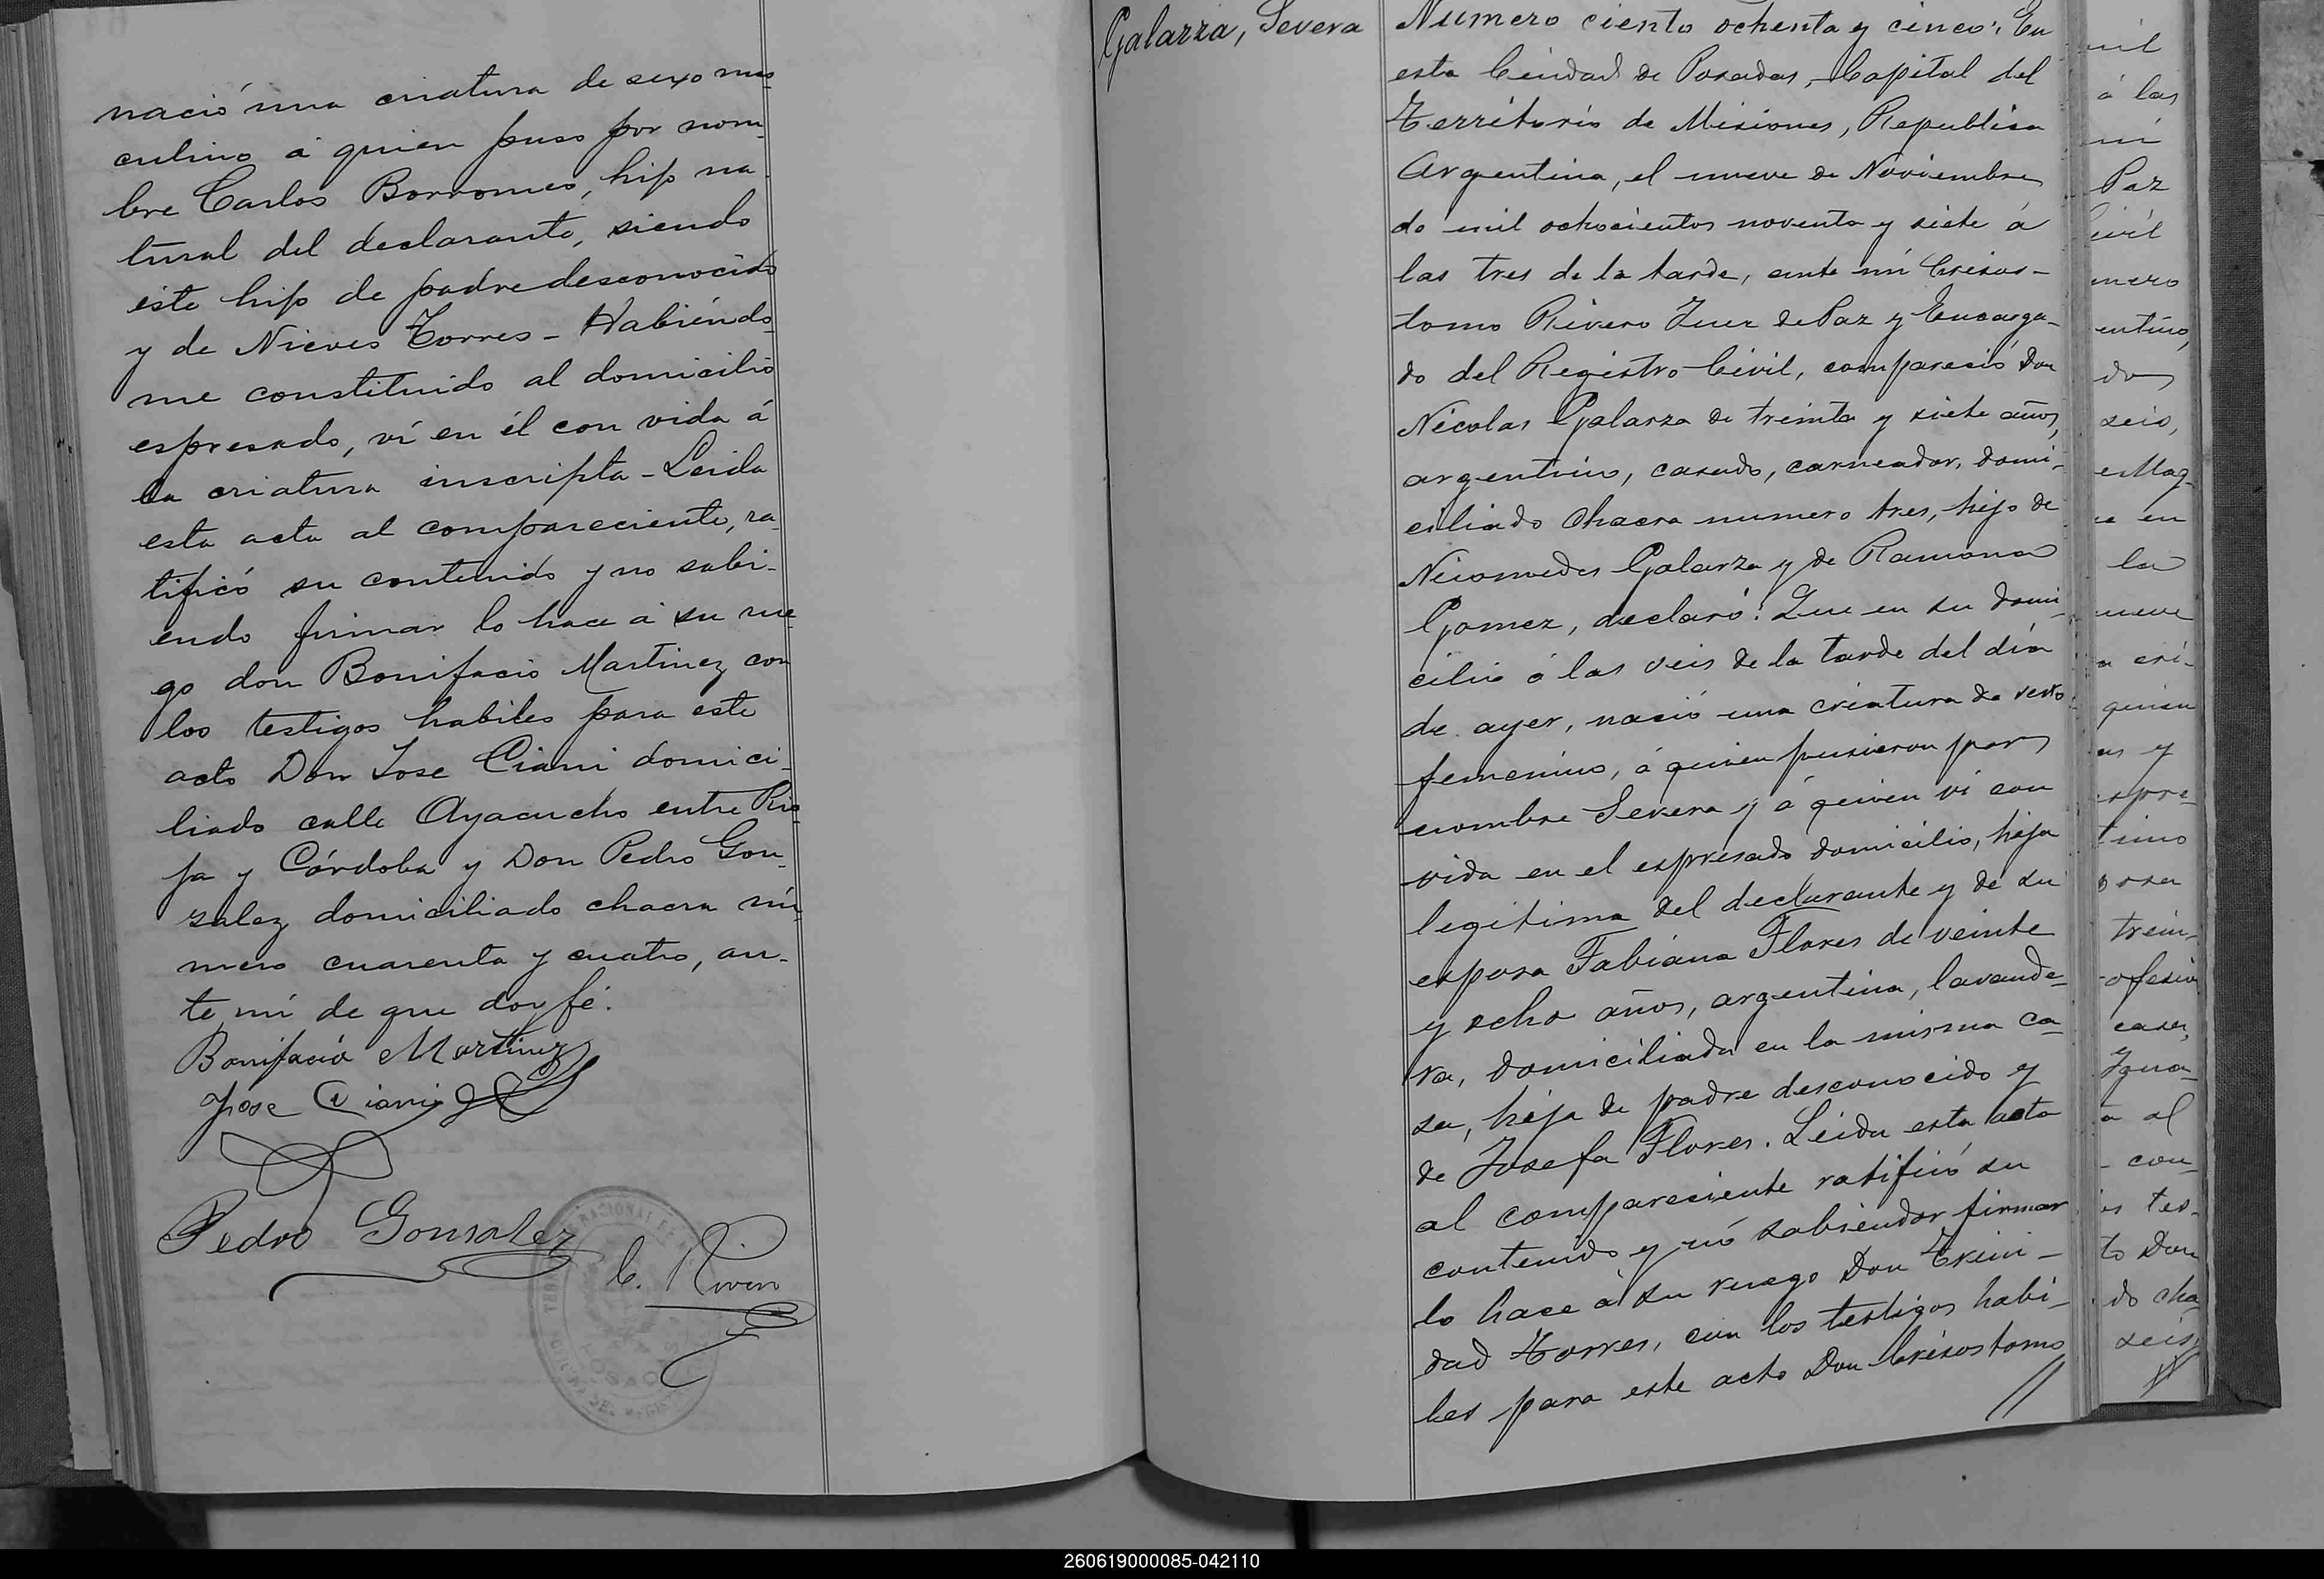 nació una criatura de sexo mas-
culino á quien puso por nom-
bre Carlos Borromeo, hijo na-
tural del declarante, siendo
éste hijo de padre desconocido
y de Nieves Torres - Habiéndo-
me constituido al domicilio
espresado, ví en él con vida á
la criatura inscripta - Leida
esta acta al compareciente, ra-
tificó su contenido y no sabi-
endo firmar lo hace á su rue-
go don Bonifacio Martinez con
los testigos habiles para este
acto Don Jose Ciani domici-
liado calle Ayacucho entre Rio-
ja y Córdoba y Don Pedro Gon-
zalez domiciliado chacra nú-
mero cuarenta y cuatro, an-
te mí de que doy fé.
Bonifacio Martinez
Jose Ciani
Pedro Gonzalez
C. Rivero
Galarza, Severa
Numero ciento ochenta y cinco: En
esta Ciudad de Posadas, Capital del
Territorio de Misiones, Republica
Argentina, el nueve de Noviembre
de mil ochocientos noventa y siete á
las tres de la tarde, ante mí Crisos-
tomo Rivero Juez de Paz y Encarga-
do del Registro Civil, compareció Don
Nicolas Galarza de treinta y siete años,
argentino, casado, carneador, domi-
ciliado Chacra numero tres, hijo de
Nicomedes Galarza y de Ramona
Gomez, declaró: Que en su domi-
cilio á las seis de la tarde del día
de ayer, nació una criatura de sexo
femenino, á quien pusieron por
nombre Severa y á quien ví con
vida en el espresado domicilio, hija
legitima del declarante y de su
esposa Fabiana Flores de veinte
y ocho años, argentina, lavande-
ra, domiciliada en la misma ca-
sa, hija de padre desconocido y
de Josefa Flores. Leida esta acta
al compareciente ratificó su
contenido y nó sabiendor firmar
lo hace á su ruego Don Trini-
dad Torres, con los testigos habi-
les para este acto Don Crisostomo
//
mil
á las
mí
Paz
Civil
mero
entino,
do
seis,
en
la
nueve
a cri-
quien
as y
espre-
timo
posa
trein-
ofesion
casa,
Igna-
ta al
con-
os tes-
to Don
do cha-
seis,
//
260619000085-042110